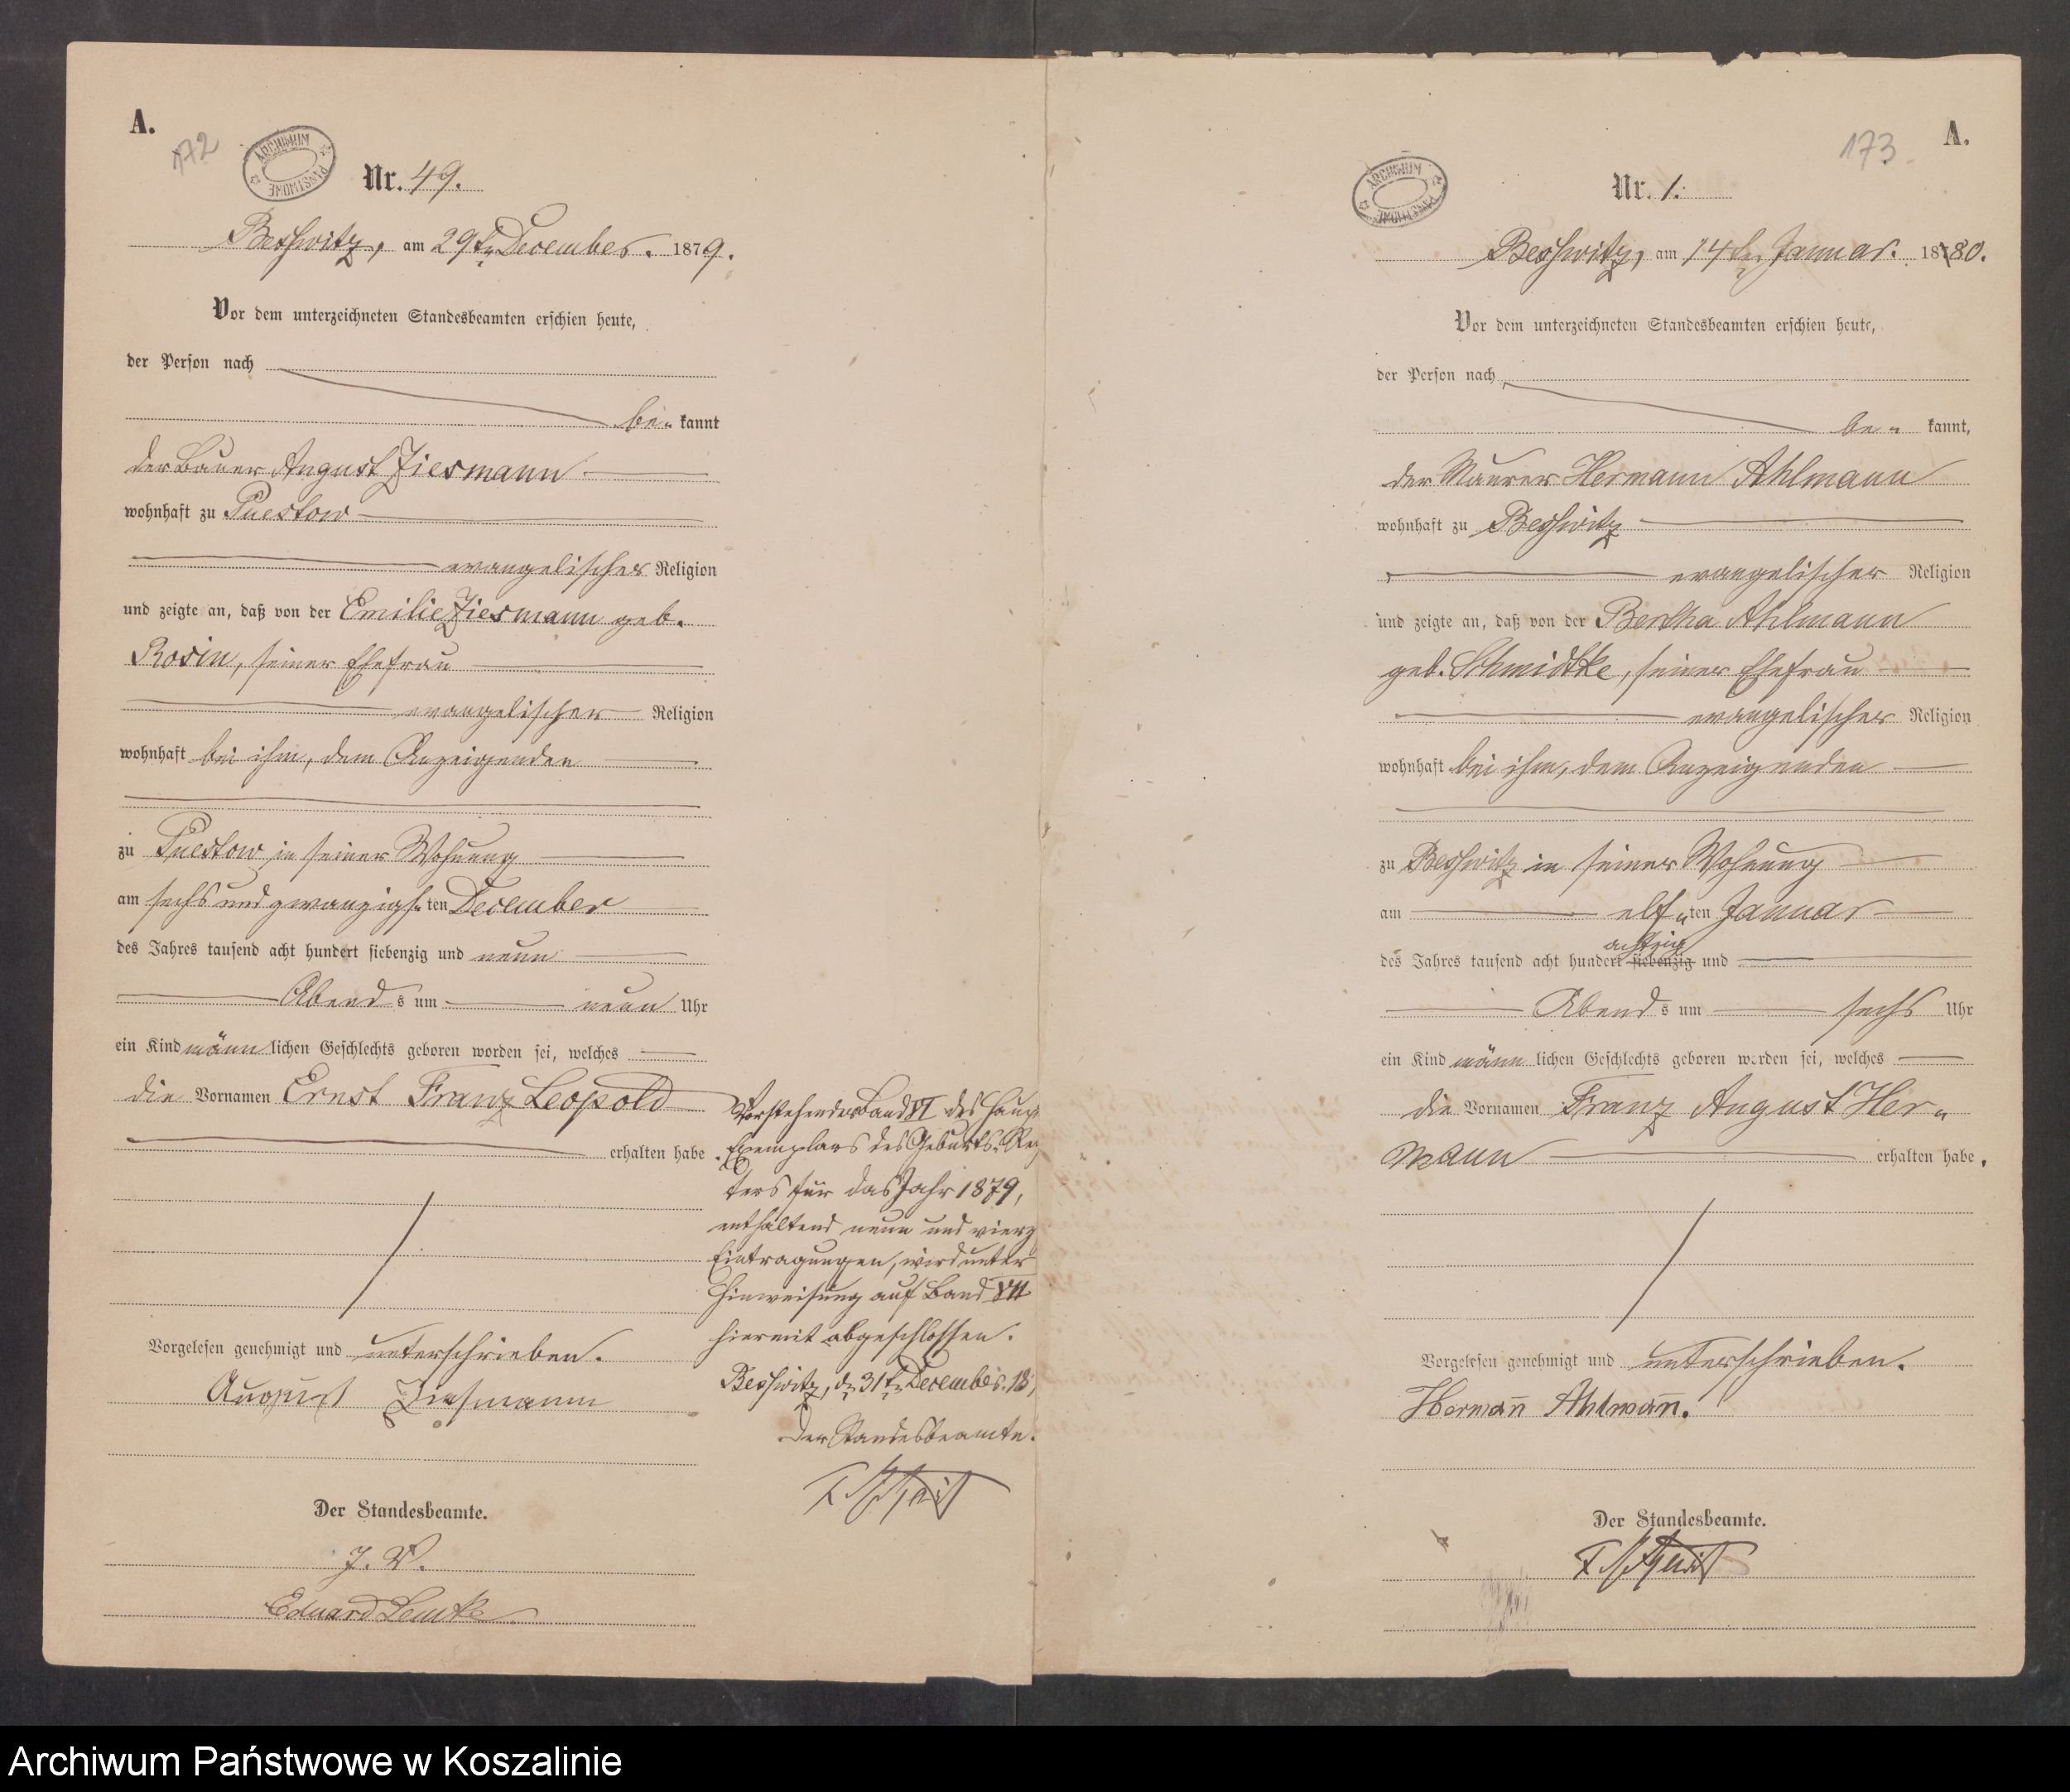 A.
172
ARCHIWUM PAŃSTWOWE
Nr. 49.
Beßwitz, am 29ten December. 1879.
Vor dem unterzeichneten Standesbeamten erschien heute,
der Person nach
be- kannt
der Bauer August Ziesmann
wohnhaft zu Puestow
evangelischer Religion
und zeigte an, daß von der Emilie Ziesmann geb.
Rosin, seiner Ehefrau
evangelischer Religion
wohnhaft bei ihm, dem Anzeigenden
zu Puestow in seiner Wohnung
am sechs und zwanzigsten December
des Jahres tausend acht hundert siebenzig und neun
Abends um neun Uhr
ein Kind männlichen Geschlechts geboren worden sei, welches
die Vornamen Ernst Franz Leopold
erhalten habe.
Vorgelesen genehmigt und unterschrieben.
August Ziesmann
Der Standesbeamte.
J. V.
Eduard Lemke
Vorstehender Band VI des Haupt
Exemplars des Geburts-Re
ters für das Jahr 1879,
enthaltend neun und vierz
Eintragungen, wird unter
Hinweisung auf Band VII
hiermit abgeschlossen.
Beßwitz, d. 31ten December. 18
Der Standesbeamte.
A.
173
ARCHIWUM PAŃSTWOWE
Nr. 1.
Beßwitz, am 14ten Januar. 1880.
Vor dem unterzeichneten Standesbeamten erschien heute,
der Person nach
be- kannt,
der Maurer Hermann Ahlmann
wohnhaft zu Beßwitz
evangelischer Religion
und zeigte an, daß von der Bertha Ahlmann
geb. Schmidtke, seiner Ehefrau
evangelischer Religion
wohnhaft bei ihm, dem Anzeigenden
zu Beßwitz in seiner Wohnung
am elf-ten Januar
achtzig
des Jahres tausend acht hundert siebenzig und
Abends um sechs Uhr
ein Kind männlichen Geschlechts geboren worden sei, welches
die Vornamen Franz August Her-
mann erhalten habe.
Vorgelesen genehmigt und unterschrieben.
Hermann Ahlmann.
Der Standesbeamte.
Archiwum Państwowe w Koszalinie